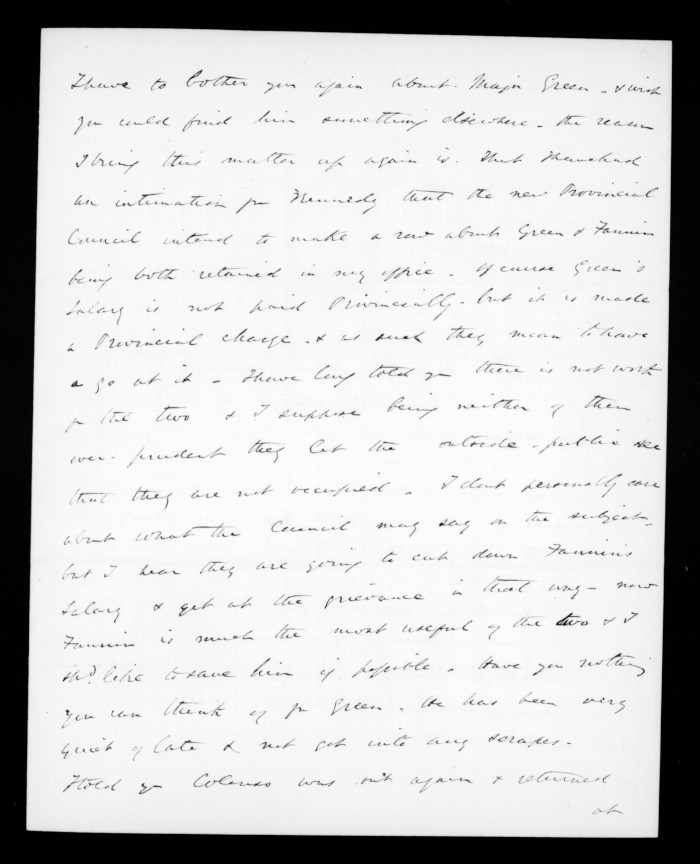 I have to bother you again about Major Green - & wish
you could find him something elsewhere - the reason
I bring this matter up again is. that I have had
an intimation fr Kennedy that the new Provincial
Council intend to make a row about Green & Fannin
being both retained in my office - of course Green's
Salary is not paid Provincially - but it is made
a Provincial charge - & as such they mean to have
a go at it - I have long told you there is not work
fr the two & I suppose being neither of them
over-prudent they let the outside-public see
that they are not occupied. I dont personally care
about what the Council may say on the subject -
but I hear they are going to cut down Fannin's
Salary & get at the grievance in that way - now
Fannin is much the most useful of the two & I
shd. like to save him if possible. Have you nothing
you can think of fr Green. He has been very
quiet of late & not got into any scrapes -
I told you Colenso was out again & returned
at